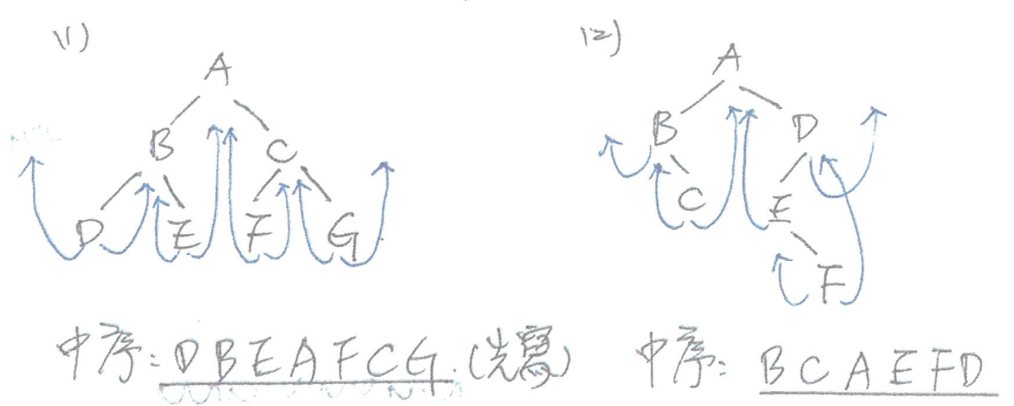 (1)
A
B C
D E F G
中序: DBEAFCG. (先寫)
(2)
A
B D
C E
F
中序: BCAEFD